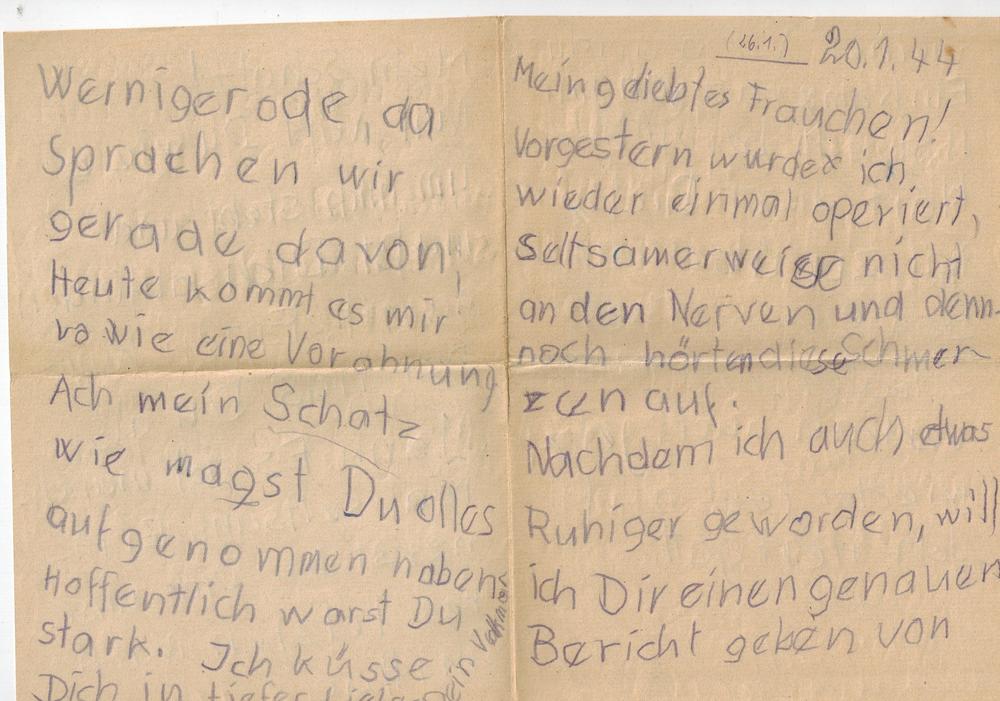 Wernigerode, da
Sprachen wir
gerade davon!
Heute kommt es mir
vo wie eine Vorahnung
Ach mein Schatz
wie magst Du alles
aufgenommen haben
Hoffentlich warst Du
stark. Ich küsse
Dich in tiefer
Dein
(26.1.) 20.1.44
Mein geliebtes Frauchen!
Vorgestern wurde ich
wieder einmal operiert,
seltsamerweise nicht
an den Nerven und denn-
noch hörten diese Schmer
zen auf.
Nachdem ich auch etwas
Ruhiger geworden, will
ich Dir einen genauen
Bericht geben von